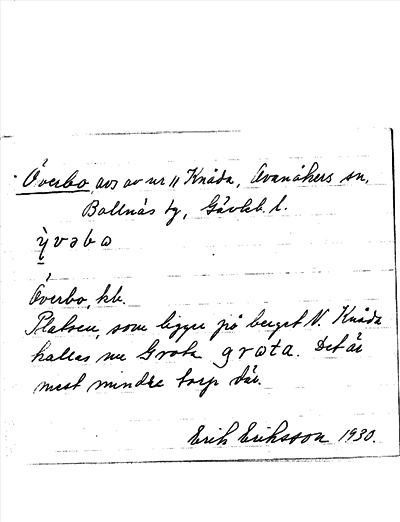 Överbo, avs av nr 11 Knåda, Ovanåkers sn,
Bollnäs tg, Gävleb. l.
ỳ̨vəbɷ
Överbo, kb.
Platsen, som ligger på berget N. Knåda
kallas nu Grota grɷta. Det är
mest mindre torp där.
Erik Eriksson 1930.